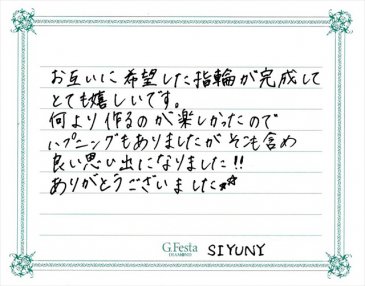 お互いに希望した指輪が完成して
とても嬉しいです。
何より作るのが楽しかったので
ハプニングもありましたがそも含め
良い思い出になりました!!
ありがとうございました☆☆
G.Festa
DIAMOND
SIYUNY